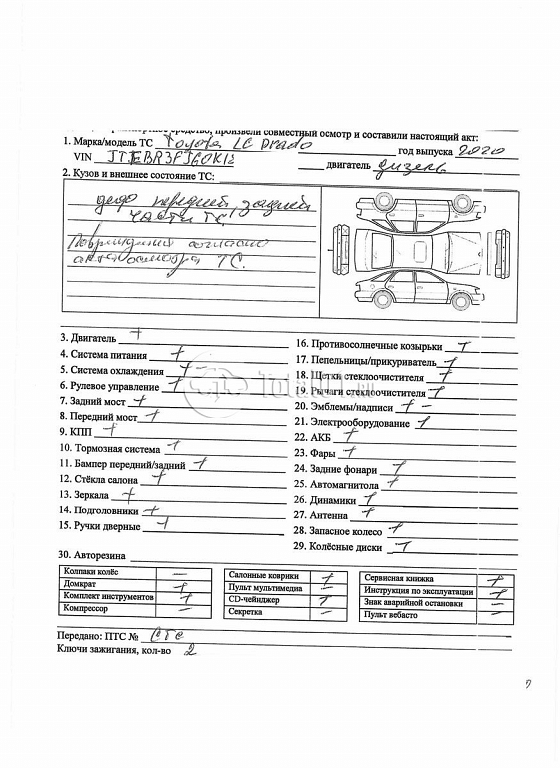 средство, произвели совместный осмотр и составили настоящий акт:
1. Марка/модель ТС Toyota LC Prado год выпуска 2020
VIN двигатель дизель
2. Кузов и внешнее состояние ТС:
передней, задней
части ТС,
Повреждения согласно
акта осмотра ТС.
3. Двигатель +
4. Система питания +
5. Система охлаждения +
6. Рулевое управление +
7. Задний мост +
8. Передний мост +
9. КПП +
10. Тормозная система +
11. Бампер передний/задний +
12. Стёкла салона +
13. Зеркала +
14. Подголовники +
15. Ручки дверные +
16. Противосолнечные козырьки +
17. Пепельницы/прикуриватель +
18. Щетки стеклоочистителя +
19. Рычаги стеклоочистителя +
20. Эмблемы/надписи + –
21. Электрооборудование +
22. АКБ +
23. Фары +
24. Задние фонари +
25. Автомагнитола +
26. Динамики +
27. Антенна +
28. Запасное колесо +
29. Колёсные диски +
30. Авторезина
Колпаки колёс –
Домкрат +
Комплект инструментов +
Компрессор –
Салонные коврики +
Пульт мультимедиа –
CD-чейнджер +
Секретка –
Сервисная книжка +
Инструкция по эксплуатации +
Знак аварийной остановки –
Пульт вебасто –
Передано: ПТС № СТС
Ключи зажигания, кол-во 2
Total01.ru